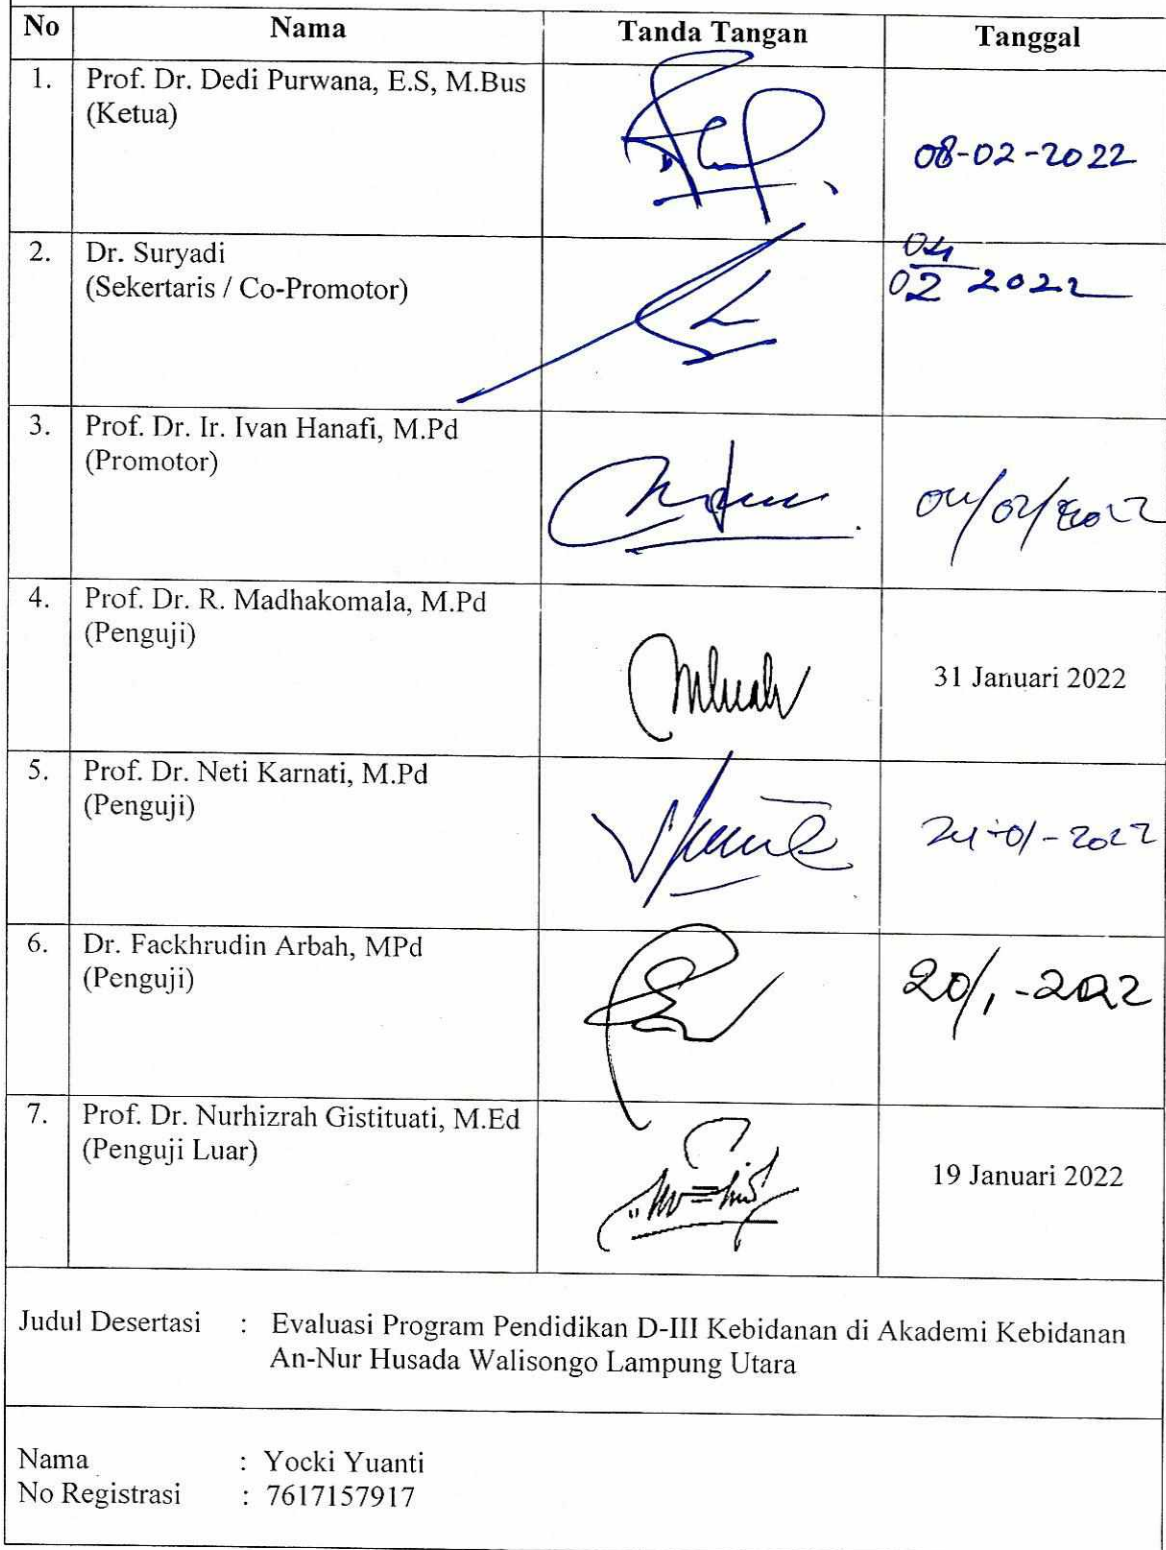 No Nama Tanda Tangan Tanggal
1. Prof. Dr. Dedi Purwana, E.S, M.Bus
(Ketua)
08-02-2022
2. Dr. Suryadi
(Sekertaris / Co-Promotor)
04
02 2022
3. Prof. Dr. Ir. Ivan Hanafi, M.Pd
(Promotor)
04/02/2022
4. Prof. Dr. R. Madhakomala, M.Pd
(Penguji)
31 Januari 2022
5. Prof. Dr. Neti Karnati, M.Pd
(Penguji)
24-01-2022
6. Dr. Fackhrudin Arbah, MPd
(Penguji)
20/1-2022
7. Prof. Dr. Nurhizrah Gistituati, M.Ed
(Penguji Luar)
19 Januari 2022
Judul Desertasi : Evaluasi Program Pendidikan D-III Kebidanan di Akademi Kebidanan
An-Nur Husada Walisongo Lampung Utara
Nama : Yocki Yuanti
No Registrasi : 7617157917